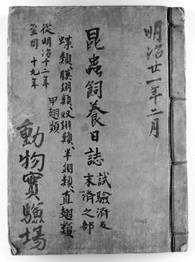 明治廿一年二月
昆蟲飼養日誌
試驗済及
未済之部
蝶類、膜翅類、双翅類、半翅類、直翅類、
甲翅類
從明治十二年
至同 十九年
動物實驗場